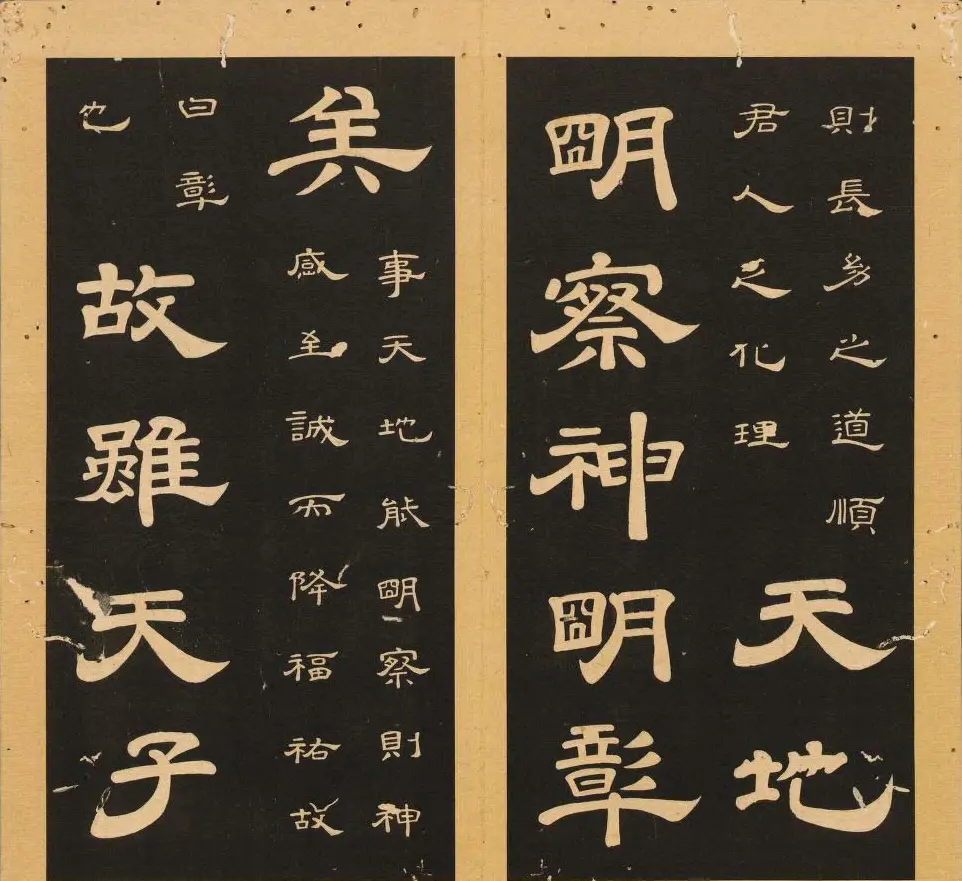 則長幼之道順
君人之化理
天地
朙察神朙彰
矣
事天地能朙察則神
感至誠而降福祐故
曰彰
也
故雖天子